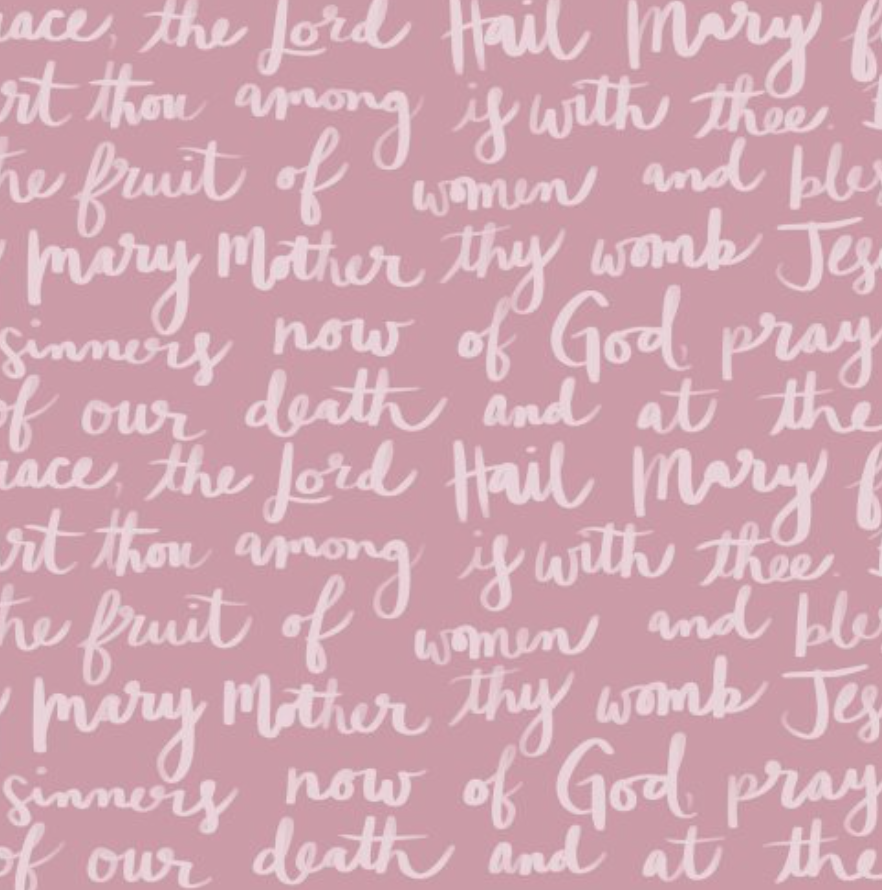 ace, the Lord Hail Mary f
rt thou among is with thee.
he fruit of women and bles
mary Mother thy womb Jes
sinners now of God, pray
of our death and at the
ace, the Lord Hail Mary f
rt thou among is with thee.
he fruit of women and bles
mary Mother thy womb Jes
sinners now of God, pray
of our death and at the